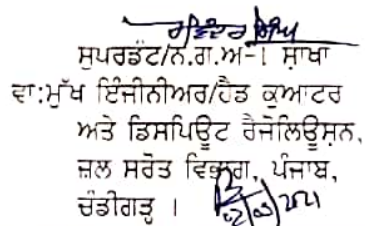 ਰਵਿੰਦਰ ਸਿੰਘ
ਸੁਪਰਡੰਟ/ਨ.ਗ.ਅ-1 ਸ਼ਾਖਾ
ਵਾ:ਮੁੱਖ ਇੰਜੀਨੀਅਰ/ਹੈਡ ਕੁਆਟਰ
ਅਤੇ ਡਿਸਪਿਊਟ ਰੈਜੋਲਿਊਸ਼ਨ,
ਜ਼ਲ ਸਰੋਤ ਵਿਭਾਗ, ਪੰਜਾਬ,
ਚੰਡੀਗੜ੍ਹ ।